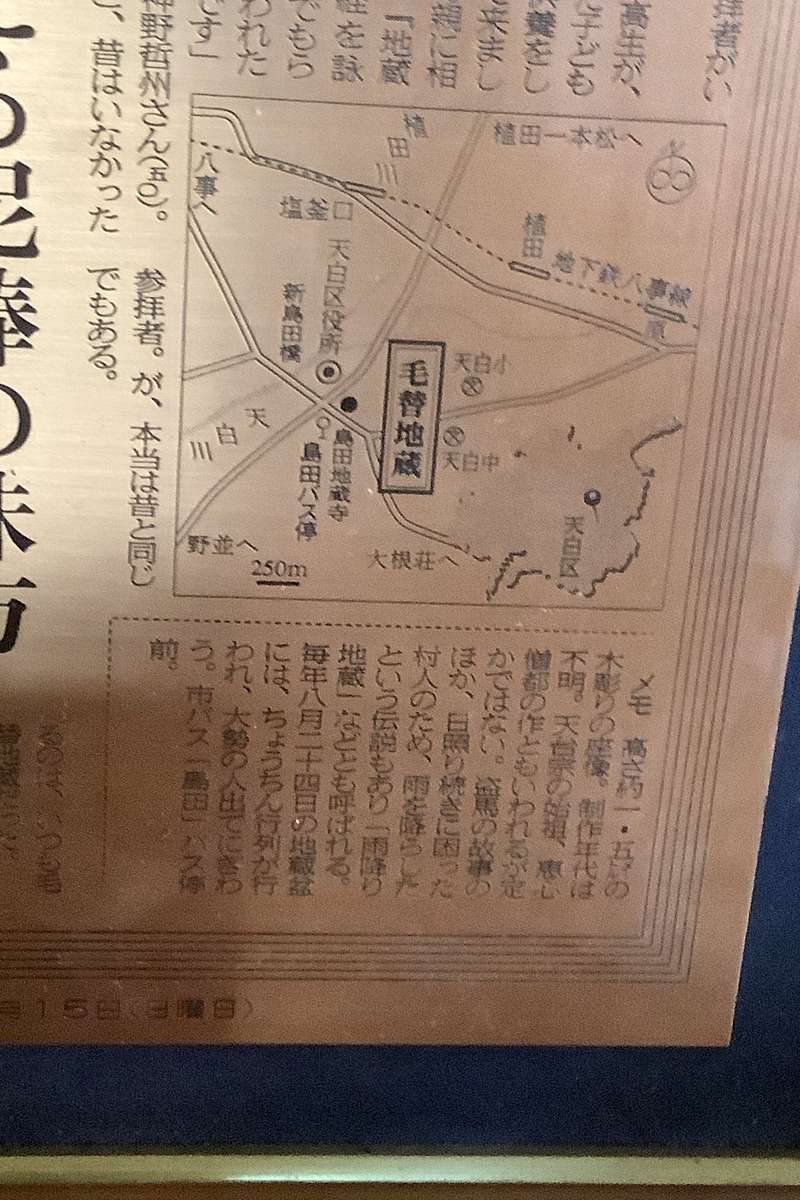 拝者がい
高生が、
た子ども
供養をし
て来まし
親に相
『地蔵
経を詠
でもら
われた
です」
神野哲州さん(五〇)。
と、昔はいなかった
参拝者。が、本当は昔と同じ
でもある。
植田一本松へ
植田川
八事へ
塩釜口
植田
地下鉄八事線
原
天白区役所
新島田橋
天白小
毛替地蔵
天白中
天白川
島田地蔵寺
島田バス停
野並へ
250m
大根荘へ
天白区
メモ 高さ約一・五㍍の
木彫りの座像。制作年代は
不明。天台宗の始祖、恵心
僧都の作ともいわれるが定
かではない。盗馬の故事の
ほか、日照り続きに困った
村人のため、雨を降らした
という伝説もあり「雨降り
地蔵」などとも呼ばれる。
毎年八月二十四日の地蔵盆
には、ちょうちん行列が行
われ、大勢の人出でにぎわ
う。市バス「島田」バス停
前。
月15日(日曜日)